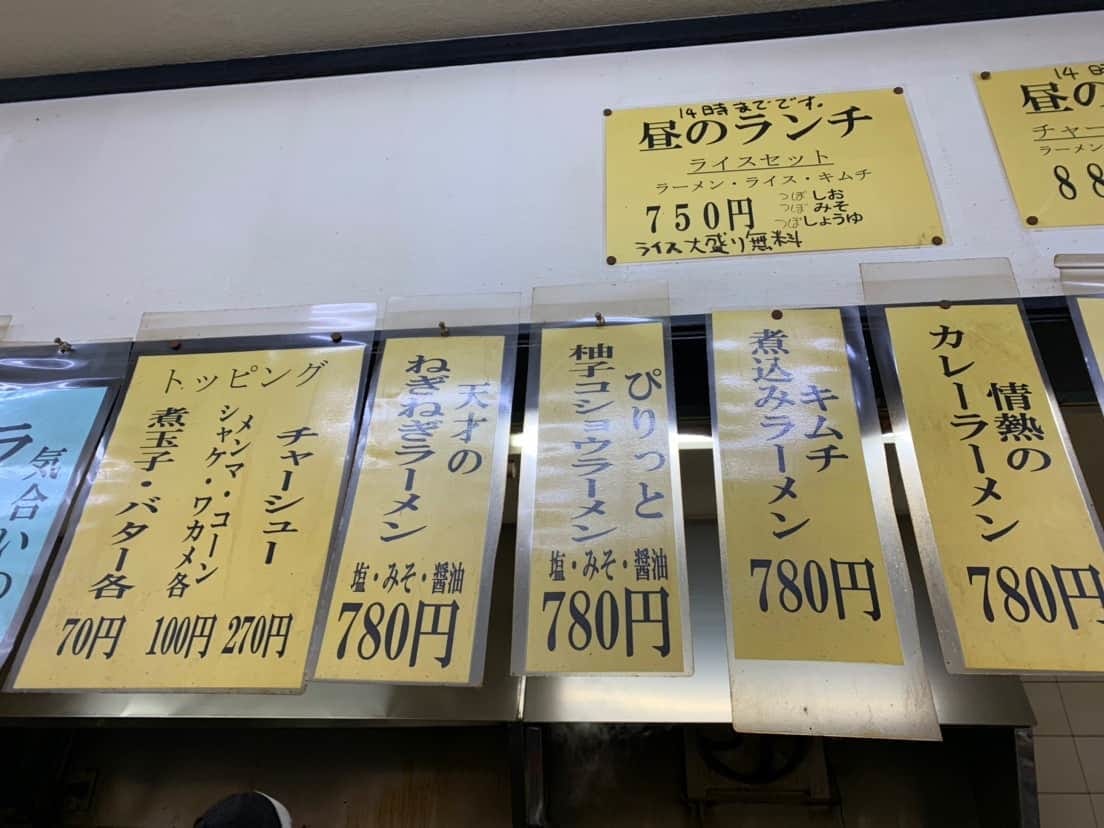 14時までです。
昼のランチ
ライスセット
ラーメン・ライス・キムチ
750円
つぼしお
つぼみそ
つぼしょうゆ
ライス大盛り無料
14時
昼の
チャー
ラーメン
88
気合いの
ラ
トッピング
チャーシュー
270円
メンマ・コーン
シャケ・ワカメ各
100円
煮玉子・バター各
70円
天才の
ねぎねぎラーメン
塩・みそ・醤油
780円
ぴりっと
柚子コショウラーメン
塩・みそ・醤油
780円
キムチ
煮込みラーメン
780円
情熱の
カレーラーメン
780円